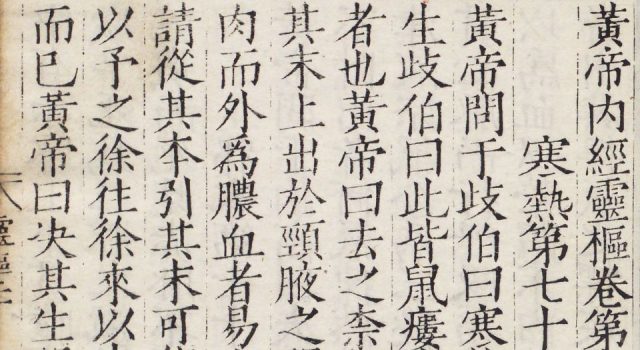 黃帝内經靈樞卷第
寒熱第七十
黃帝問于歧伯曰寒
生歧伯曰此皆鼠瘻
者也黃帝曰去之柰
其末上出於頸腋之
肉而外爲膿血者易
請從其本引其末可
以予之徐往徐來以
而已黃帝曰决其生
靈樞